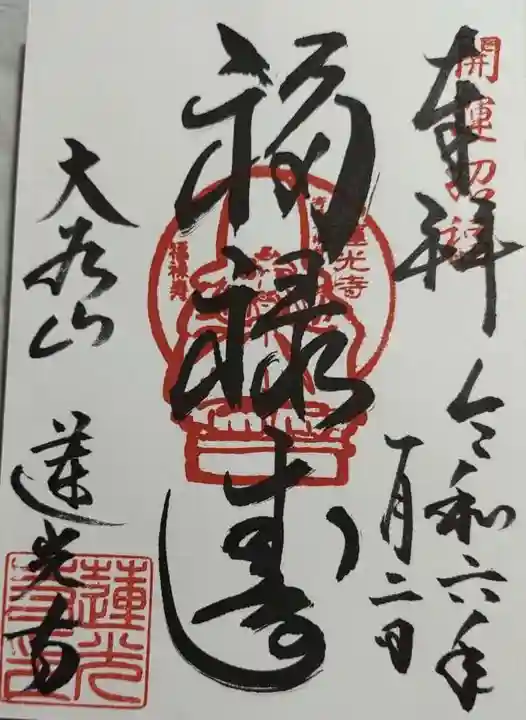 開運招福
奉拝
令和六年
一月二日
福禄寿
蓮光寺
福禄寿
大谷山
蓮光寺
蓮光
寺印